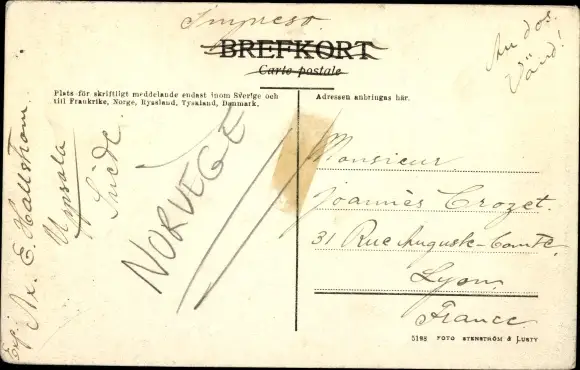 Impreso.
BREFKORT
Carte postale
Au dos.
Vänd!
Plats för skriftligt meddelande endast inom Sverige och
till Frankrike, Norge, Ryssland, Tyskland, Danmark.
Adressen anbringas här.
Exp. Ax. E. Hallström.
Uppsala
Suède.
NORVEGE
Monsieur
Joannès Crozet.
31 Rue Auguste-Comte.
Lyon.
France.
5198 FOTO STENSTRÖM & LUSTY